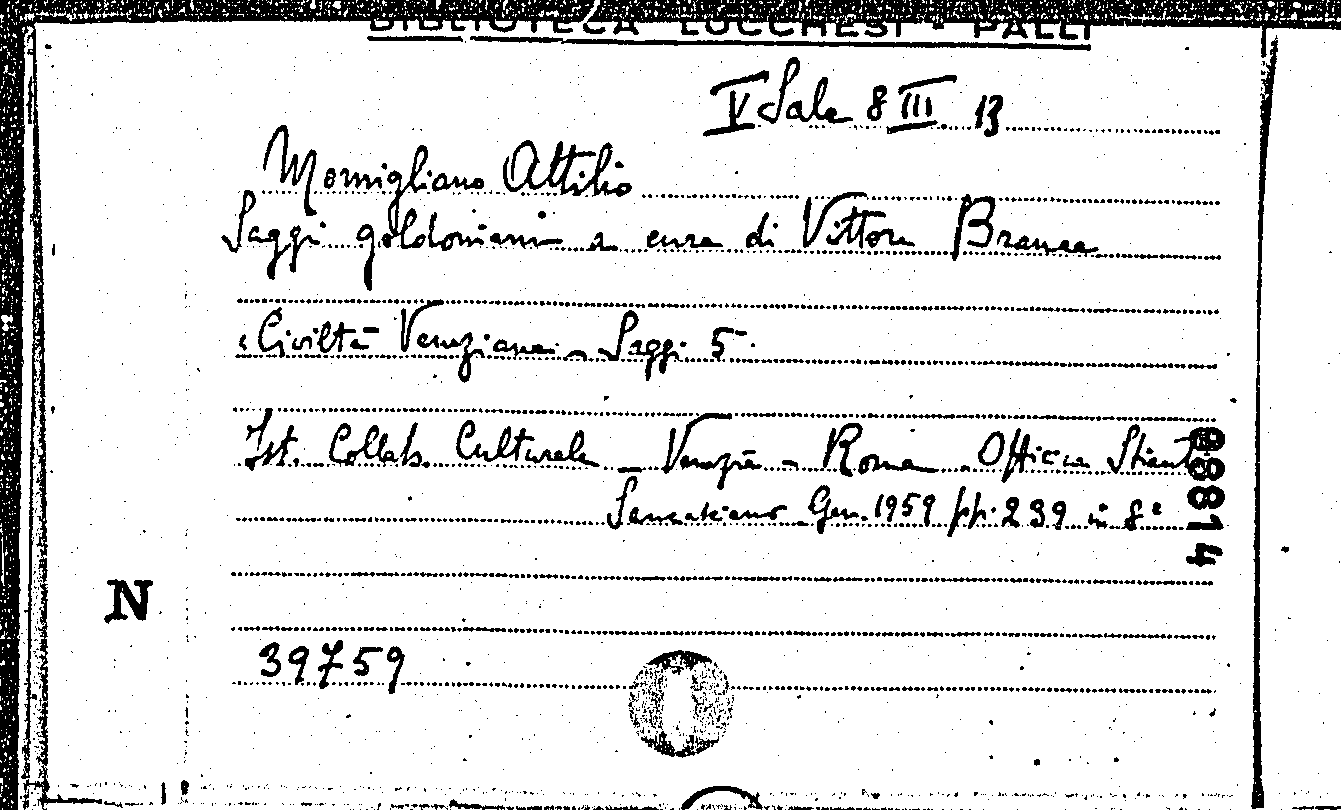 BIBLIOTECA LUCCHESI - PALLI
V Sala 8 III 13
Momigliano Attilio
Saggi goldoniani a cura di Vittore Branca
"Civiltà Veneziana - Saggi 5.
Ist. Collab. Culturale - Venezia - Roma - Officina
Gen. 1959 pp. 239 in 8°
088814
N
39759